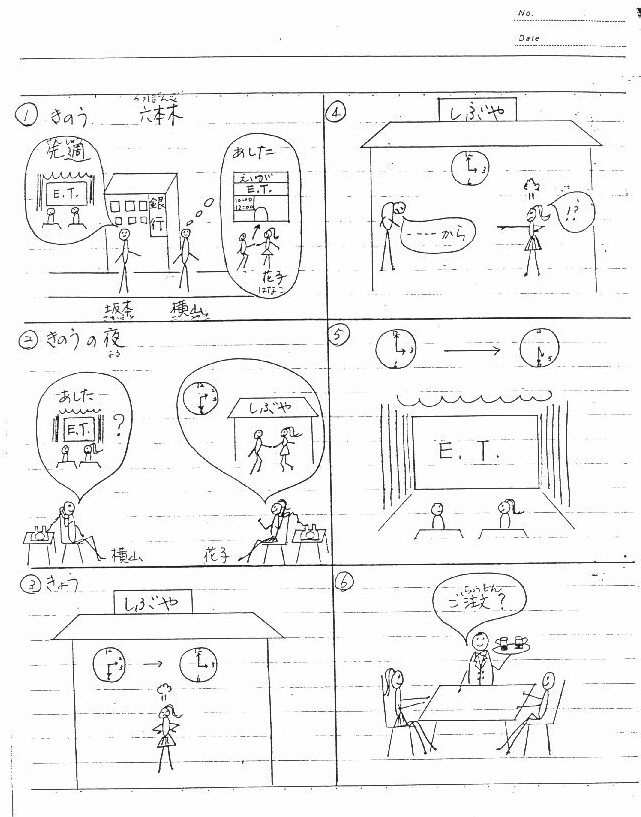 No.
Date
① きのう
ろっぽんぎ
六本木
先週
E.T.
銀行
あした
えいが
E.T.
10:00
12:00
花子
はなこ
横山
② きのうの夜
よる
あした
E.T.
?
12
3
しぶや
横山
花子
③ きょう
しぶや
12
3
→
12
3
6
④
しぶや
12
3
----から
!?
⑤
12
3
→
5
E. T.
⑥
ちゅうもん
ご注文?